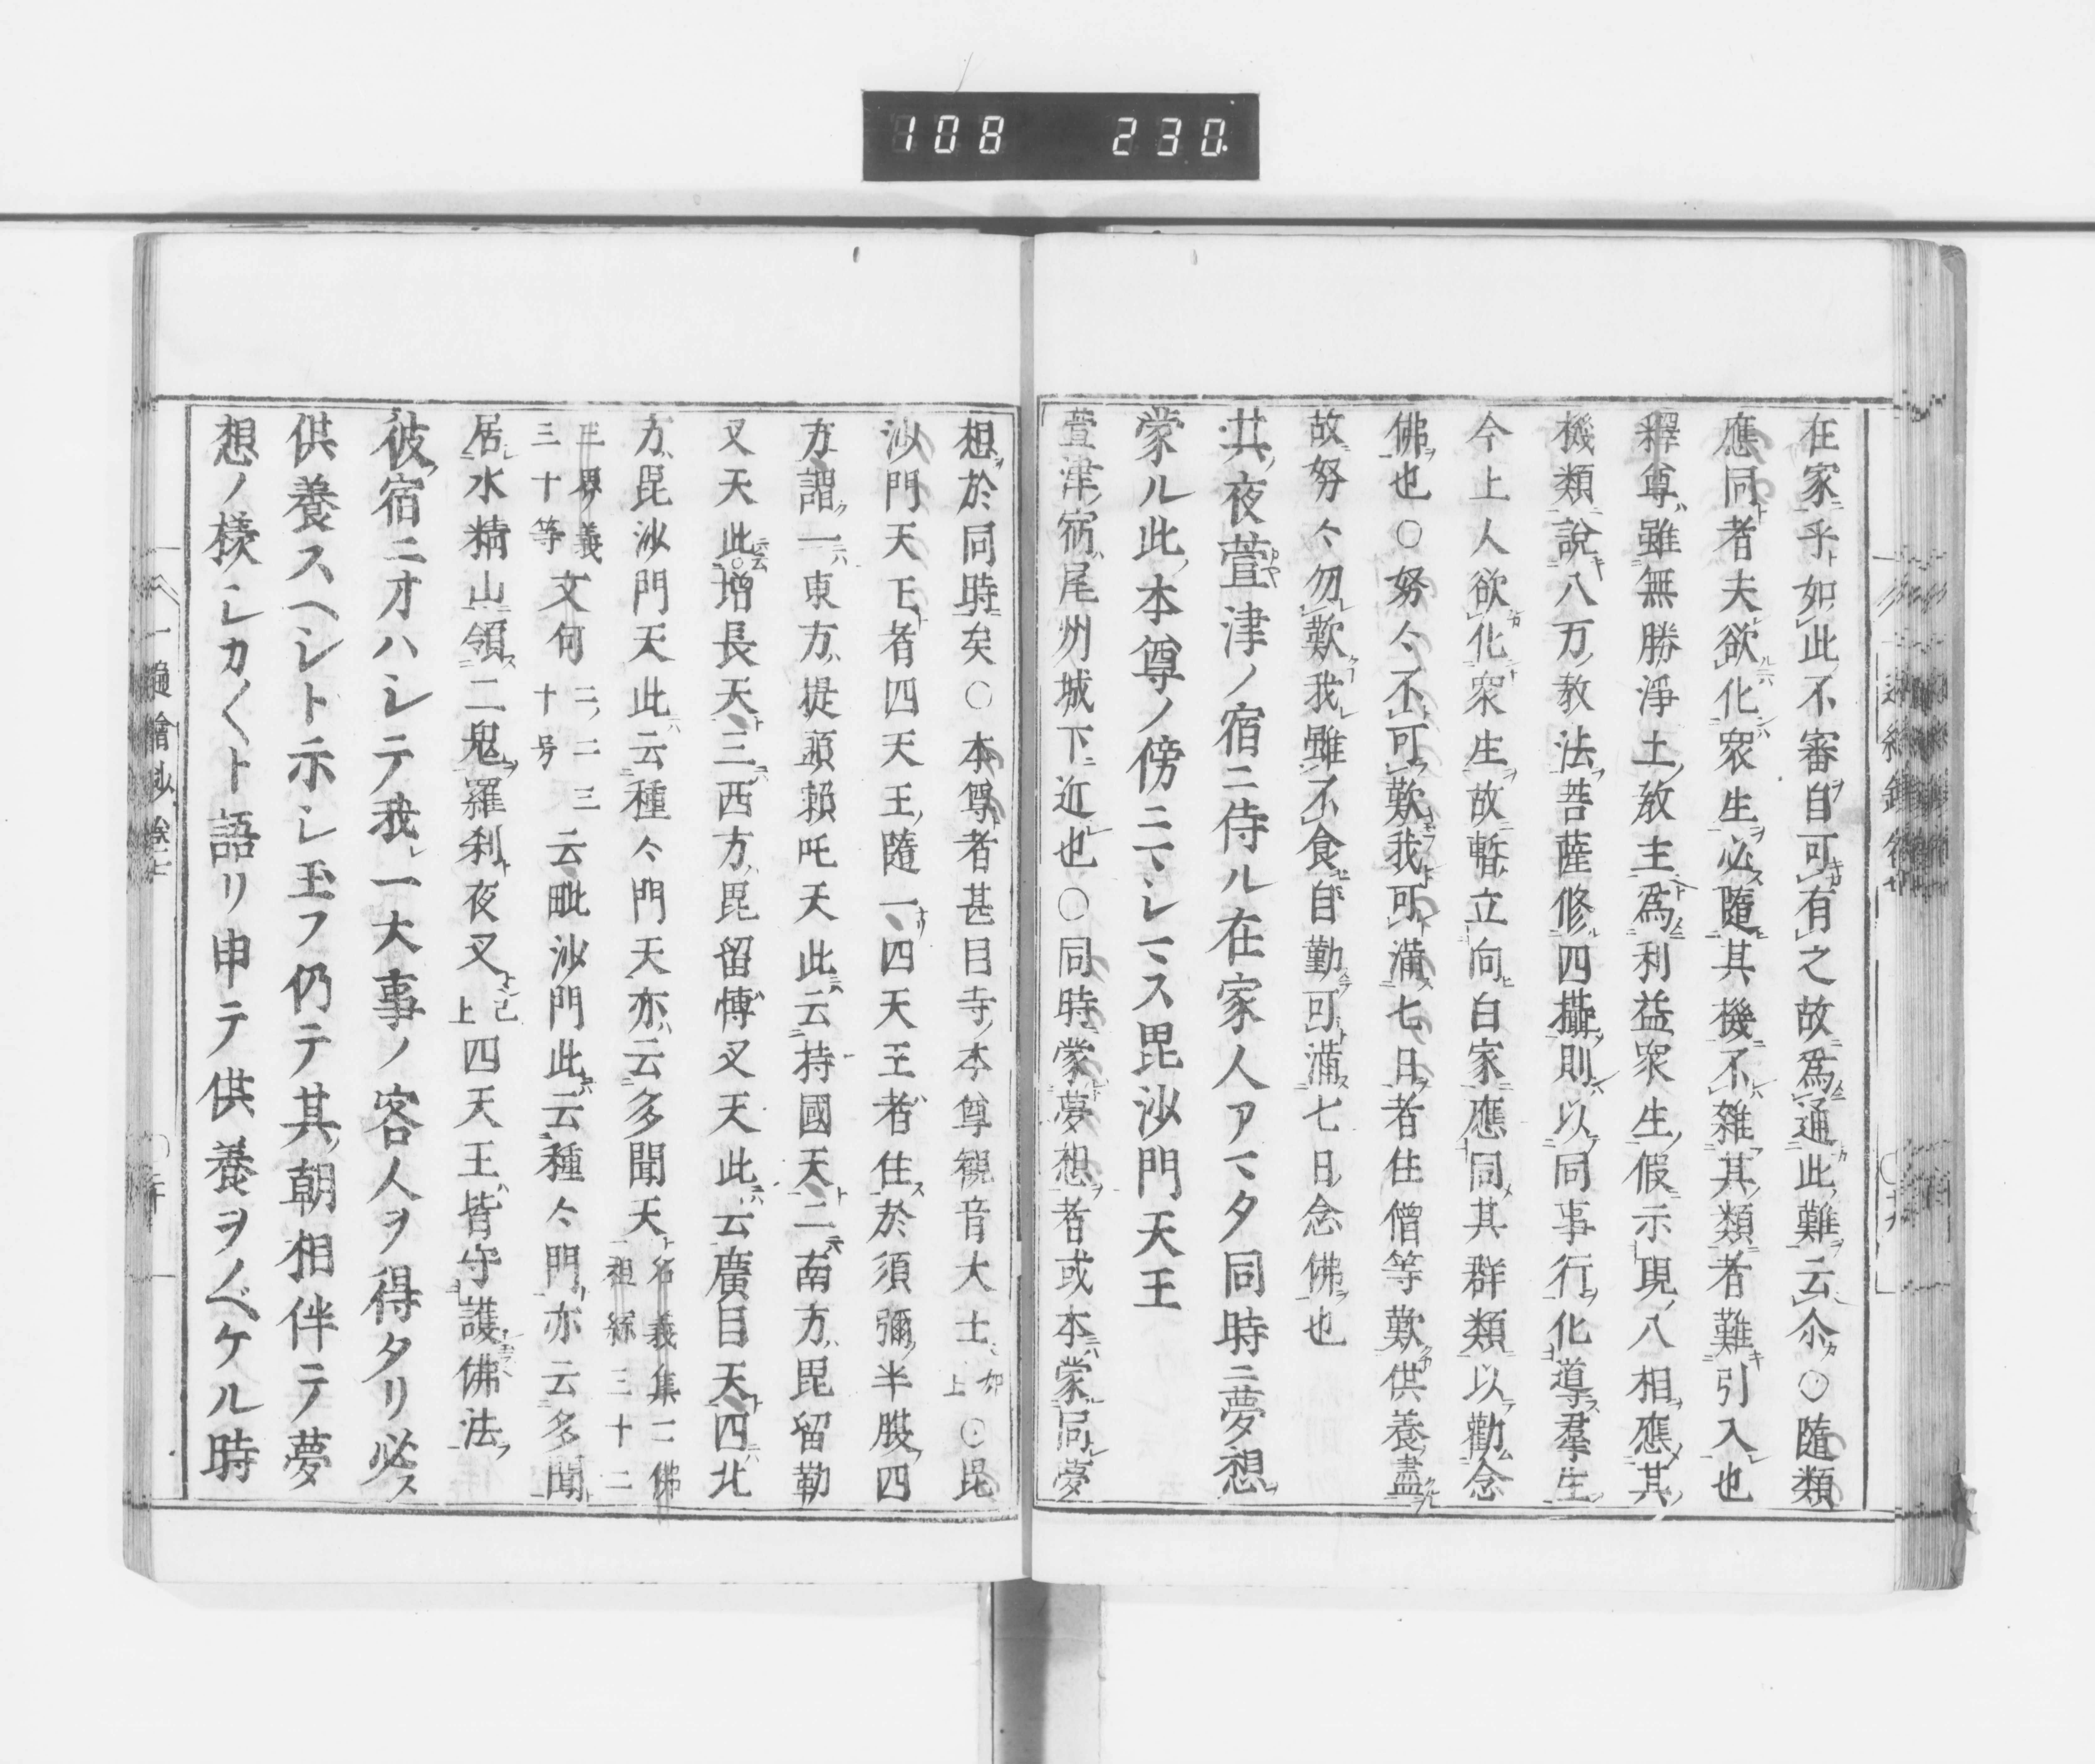 108 230
在家乎如此不審自可有之故爲通此難云尒○隨類
應同者夫欲化衆生必隨其機不雜其類者難引入也
釋尊雖無勝淨土教主爲利益衆生假示現八相應其
機類說八万教法菩薩修四攝則以同事行化導羣生
今上人欲化衆生故暫立向白家應同其群類以勸念
佛也○努々不可歎我可滿七日者住僧等歎供養盡
故努々勿歎我雖不食自勤可滿七日念佛也
其夜萱津ノ宿ニ侍ル在家人アマタ同時ニ夢想
蒙ル此本尊ノ傍ニマシマス毘沙門天王
萱津宿尾州城下近也○同時蒙夢想者或本蒙同夢
想於同時矣○本尊者甚目寺本尊觀音大士如上○毘
沙門天王者四天王隨一四天王者住於須彌半腹四
方謂一東方提頭頼吒天此云持國天二南方毘留勒
叉天此云増長天三西方毘留愽叉天此云廣目天四北
方毘沙門天此云種々門天亦云多聞天名義集二佛祖綂三十二
三界義三十等文句二二三十号云毗沙門此云種々門亦云多聞
居水精山領二鬼羅刹夜叉已上四天王皆守護佛法
彼宿ニオハシテ我一大事ノ客人ヲ得タリ必ス
供養スヘシト示シ玉フ仍テ其朝相伴テ夢
想ノ樣シカ〱ト語リ申テ供養ヲノベケル時
一遍繪抄卷七 ○二十